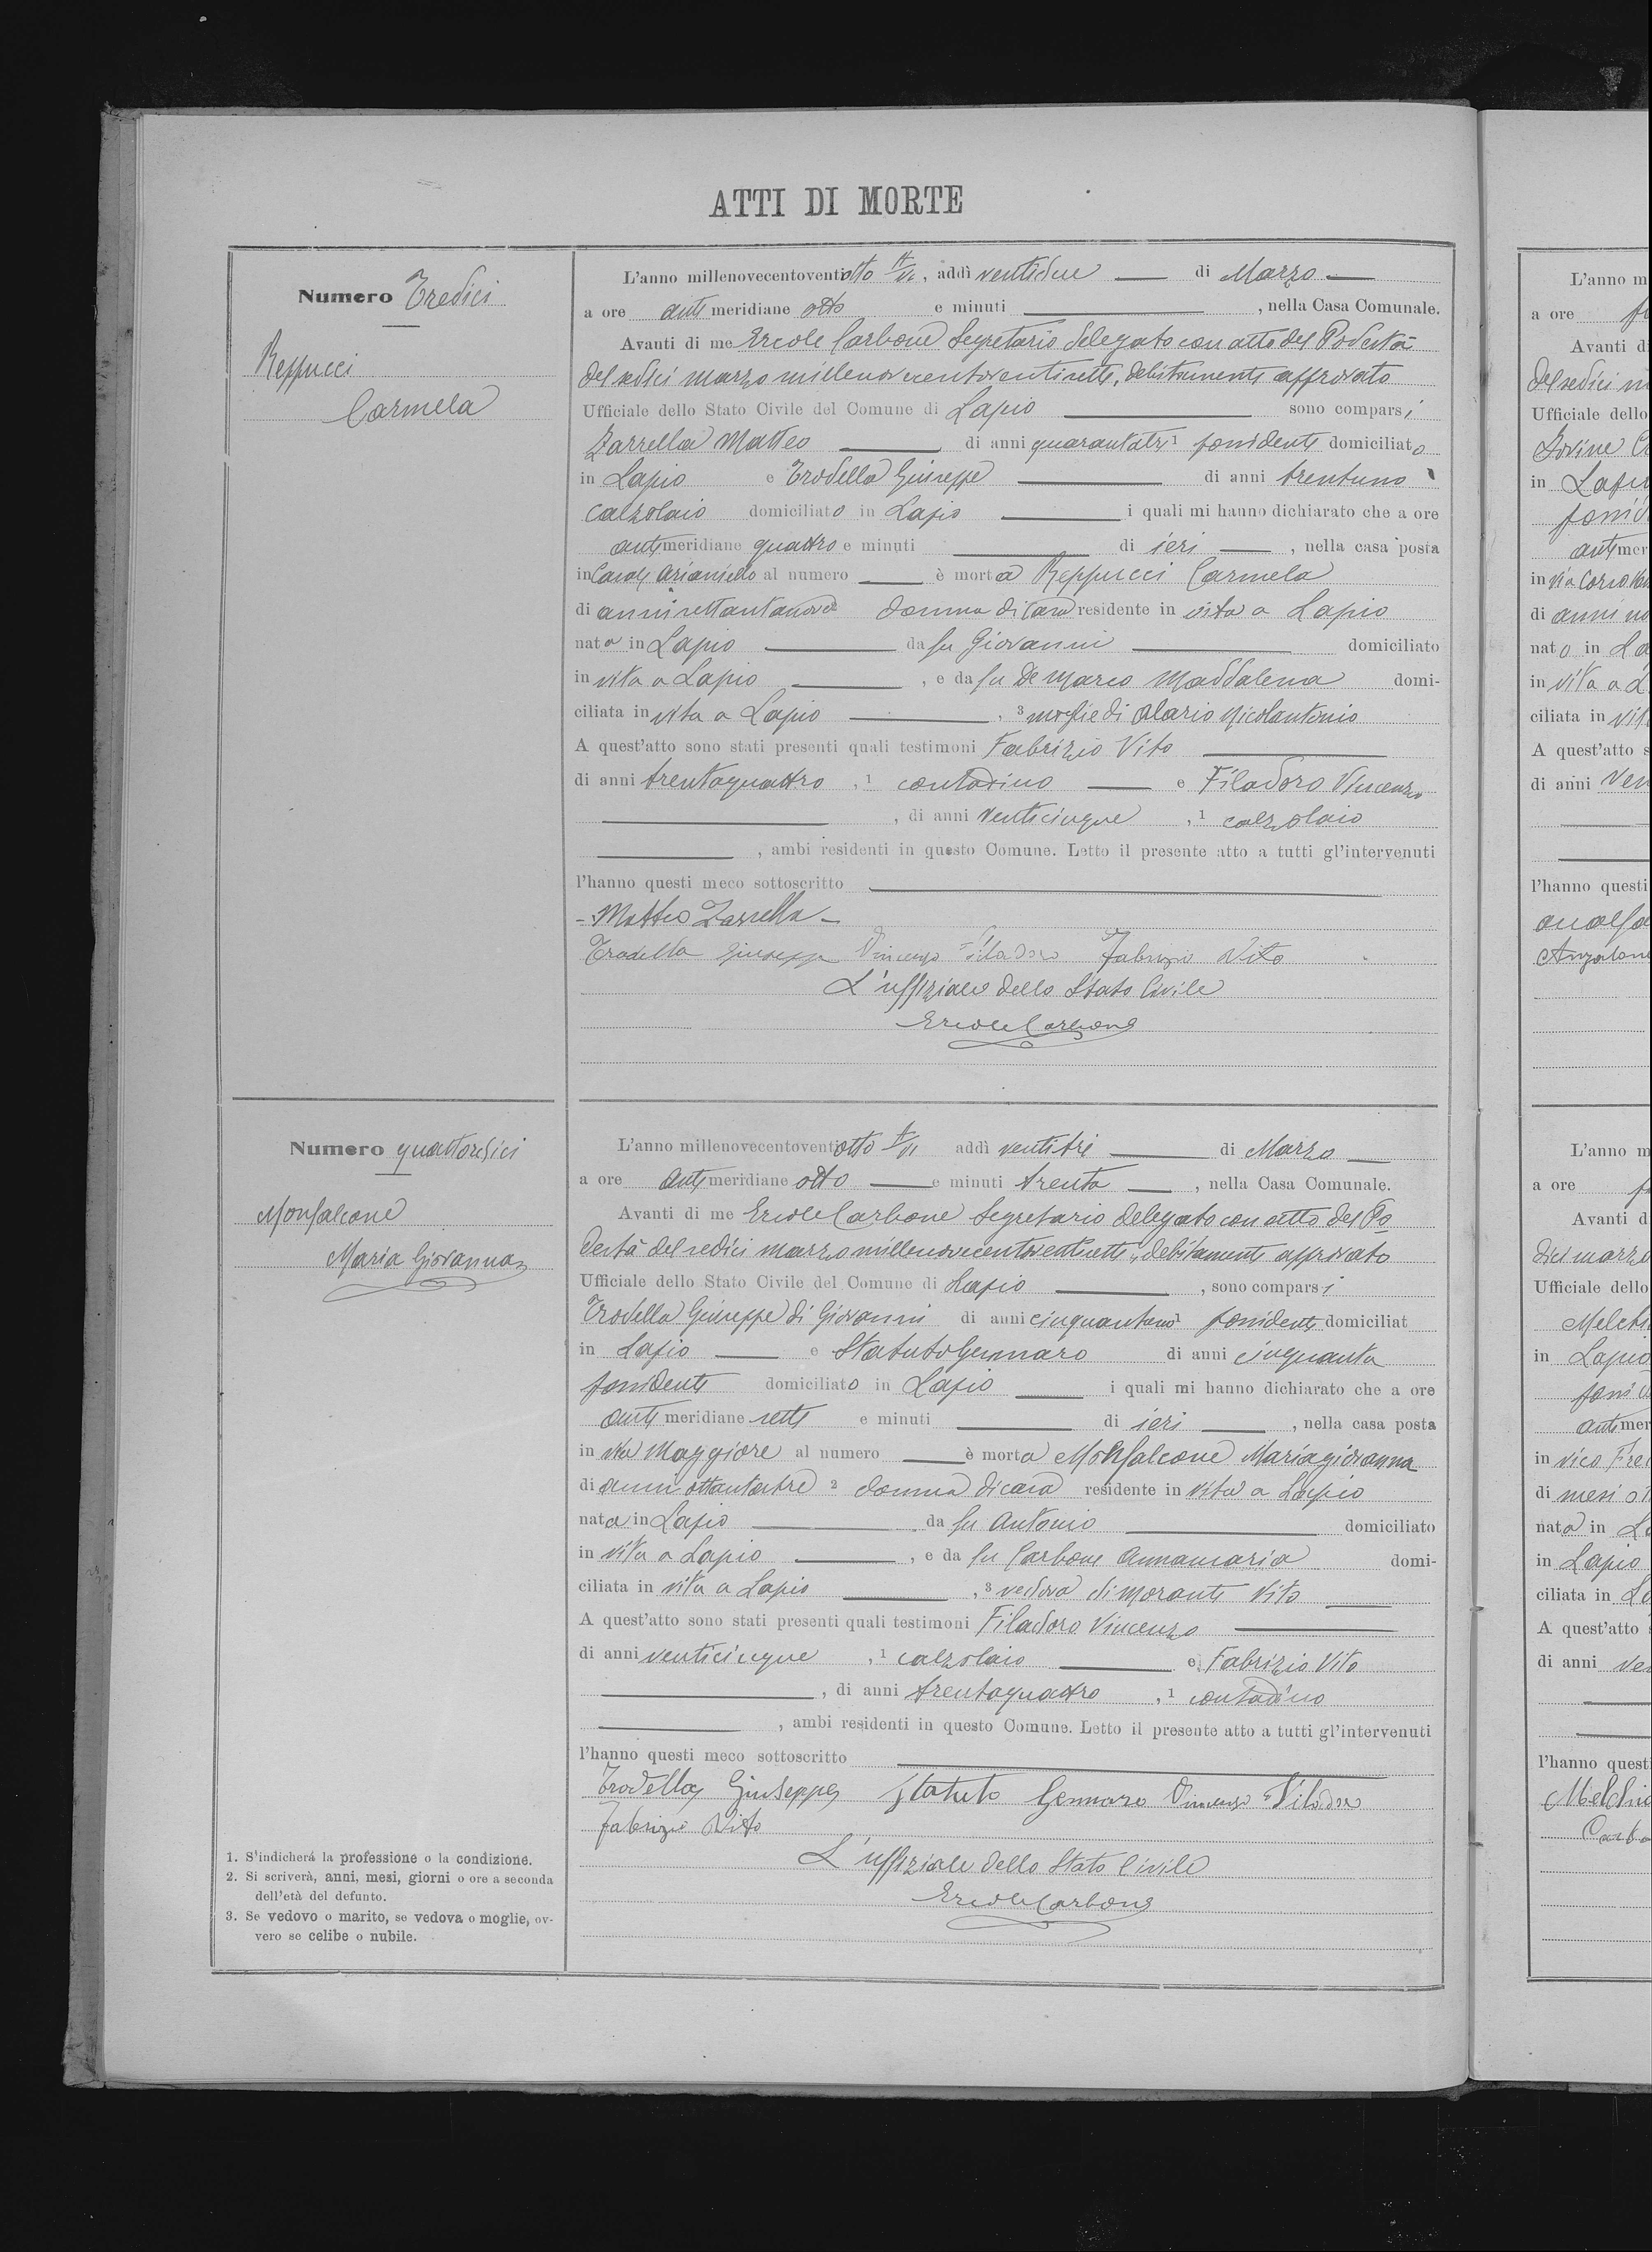 ATTI DI MORTE
Numero Tredici
Reppucci
Carmela
L'anno millenovecentoventiotto, addì ventidue di Marzo
a ore anti meridiane otto e minuti , nella Casa Comunale.
Avanti di me Ercole Carbone Segretario delegato con atto del Podestà
del sedici marzo millenovecentoventisette, debitamente approvato
Ufficiale dello Stato Civile del Comune di Lapio sono comparsi
Zarrella Matteo di anni quarantatre 1 possidente domiciliato
in Lapio e Trodella Giuseppe di anni trentuno
calzolaio domiciliato in Lapio i quali mi hanno dichiarato che a ore
anti meridiane quattro e minuti di ieri , nella casa posta
in Casale Arianiello al numero è morta Reppucci Carmela
di anni settantanove donna di casa residente in vita a Lapio
nata in Lapio da fu Giovanni domiciliato
in vita a Lapio , e da fu De Marco Maddalena domi-
ciliata in vita a Lapio , 3 moglie di Alario Nicolantonio
A quest'atto sono stati presenti quali testimoni Fabrizio Vito
di anni trentaquattro , 1 contadino e Filadoro Vincenzo
, di anni venticinque , 1 calzolaio
, ambi residenti in questo Comune. Letto il presente atto a tutti gl'intervenuti
l'hanno questi meco sottoscritto
- Matteo Zarrella -
Trodella Giuseppe Vincenzo Filadoro Fabrizio Vito
L'uffiziale dello Stato Civile
Ercole Carbone
Numero quattordici
Monfalcone
Maria Giovanna
L'anno millenovecentoventiotto addì ventitre di Marzo
a ore anti meridiane otto e minuti trenta , nella Casa Comunale.
Avanti di me Ercole Carbone Segretario delegato con atto del Po
destà del sedici marzo millenovecentoventisette, debitamente approvato
Ufficiale dello Stato Civile del Comune di Lapio , sono comparsi
Trodella Giuseppe di Giovanni di anni 1 possidente domiciliat
in Lapio e Statuto Gennaro di anni cinquanta
possidente domiciliato in Lapio i quali mi hanno dichiarato che a ore
anti meridiane sette e minuti di ieri , nella casa posta
in via Maggiore al numero è morta Monfalcone Mariagiovanna
di anni ottantatre 2 donna di casa residente in vita a Lapio
nata in Lapio da fu Antonio domiciliato
in vita a Lapio , e da fu Carbone Annamaria domi-
ciliata in vita a Lapio , 3 vedova di Morante Vito
A quest'atto sono stati presenti quali testimoni Filadoro Vincenzo
di anni venticinque , 1 calzolaio e Fabrizio Vito
, di anni trentaquattro , 1 contadino
, ambi residenti in questo Comune. Letto il presente atto a tutti gl'intervenuti
l'hanno questi meco sottoscritto
Trodella Giuseppe Statuto Gennaro Vincenzo Filadoro
Fabrizio Vito
L'uffiziale dello Stato Civile
Ercole Carbone
1. S'indicherá la professione o la condizione.
2. Si scriverà, anni, mesi, giorni o ore a seconda
dell'età del defunto.
3. Se vedovo o marito, se vedova o moglie, ov-
vero se celibe o nubile.